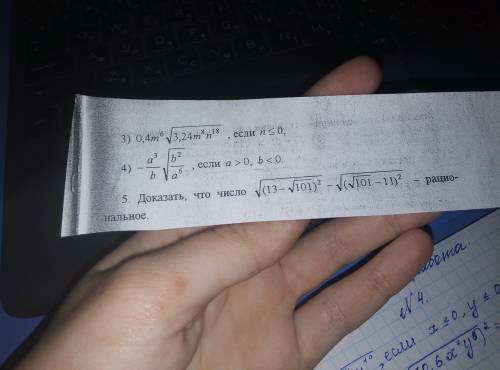 3) 0,4m⁶√(3,24m⁸n¹⁸) , если n ≤ 0;
4) −a³/b √(b²/a⁶) , если a > 0, b < 0.
5. Доказать, что число √((13−√101)²) − √((√101−11)²) – рацио-
нальное.
№4.
если x ≤ 0, y ≤ 0